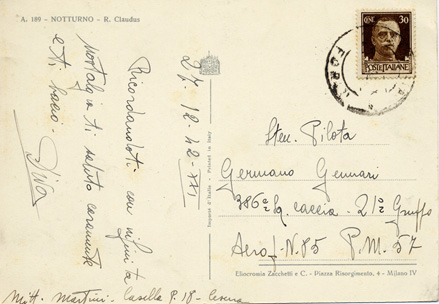 A. 189 - NOTTURNO - R. Claudus
27.12.42-XXI
Ricordandoti con infinita
nostalgia ti saluto caramente
e ti bacio - Diva
Stampato d'Italia - Printed in Italy
CENT. 30
POSTE ITALIANE
Sten. Pilota
Germano Gennari
386ª Sq. caccia - 21º Gruppo
Aerop. N.85 P.M. 57
Eliocromia Zacchetti e C. - Piazza Risorgimento, 4 - Milano IV
Mitt. Martini - Casella P. 18 - Cesena